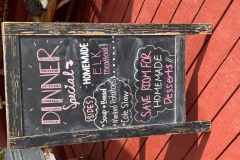 DINNER
Specials
HOMEMADE
ELK
meatloaf!
SIDES
Soup • Bread
Mashed Potatoes
Cole Slaw
SAVE ROOM FOR
HOMEMADE
Desserts!!